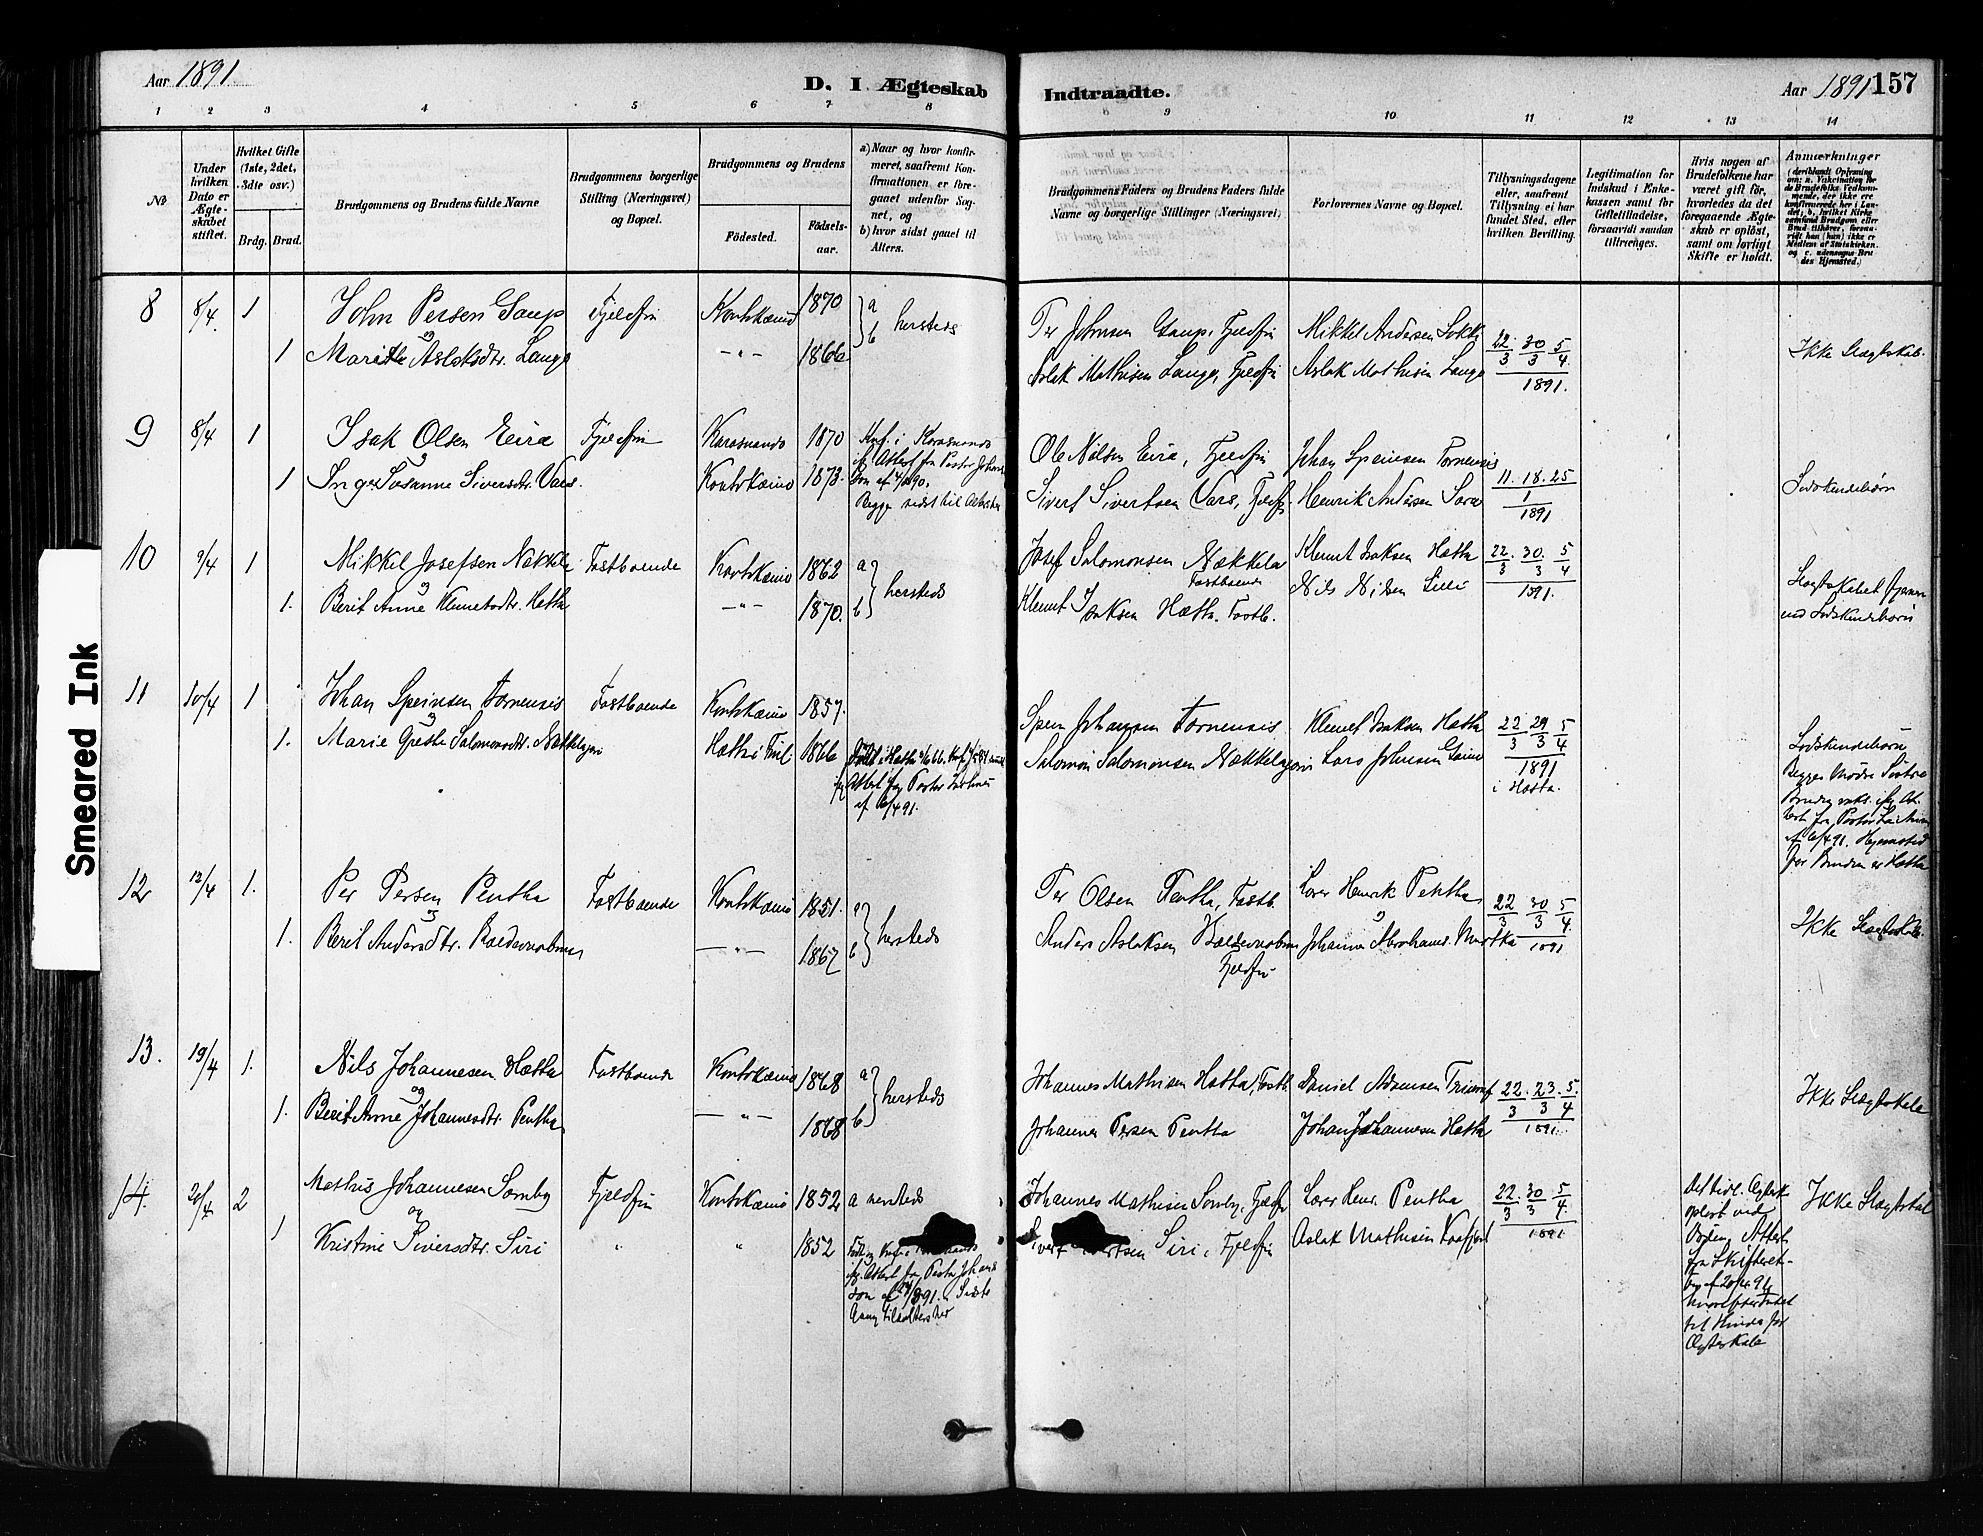 Aar 1891.
D. I Ægteskab Indtraadte.
Aar 1891 157
1 2 3 4 5 6 7 8 9 10 11 12 13 14
No
Under hvilken Dato er Ægteskabet stiftet.
Hvilket Gifte (1ste, 2det, 3die osv.)
Brdg. Brud.
Brudgommens og Brudens fulde Navne
Brudgommens borgerlige Stilling (Næringsvei) og Bopæl.
Brudgommens og Brudens
Fødested. Fødsels-aar.
a) Naar og hvor konfirmeret, saafremt Konfirmationen er foregaaet udenfor Sognet, og
b) hvor sidst gaaet til Alters.
Brudgommens Faders og Brudens Faders fulde Navne og borgerlige Stillinger (Næringsvei)
Forlovernes Navne og Bopæl.
Tillysningsdagene eller, saafremt Tillysning ei har fundet Sted, efter hvilken Bevilling.
Legitimation for Indskud i Enkekassen samt for Giftetilladelse, forsaavidt saadan tiltrænges.
Hvis nogen af Brudefolkene har været gift før, hvorledes da det foregaaende Ægteskab er opløst, samt om lovligt Skifte er holdt.
Anmærkninger
(deriblandt Oplysning om: a. Vakcination for de Brudefolks Vedkommende, der ikke ere konfirmerede her i Landet; b, hvilket Kirkesamfund Brudgom eller Brud tilhører, forsaavidt han (hun) ikke er Medlem af Statskirken, og c. udensogns Brudes Hjemsted.)
8 8/4. 1 John Persen Gaup Fjeldfin Koutokæino 1870 a
og
1 Marithe Aslaksdtr. Lango -"- 1866 b hersteds
Per Johnsen Gaup, Fjeldfin Mikkel Andersen Lokk 22/3 30/3 5/4
Aslak Mathisen Lango, Fjeldfin Aslak Mathisen Lango 1891.
Ikke Slægtskab.
9 8/4 1 Isak Olsen Eira Fjeldfin Karasnands 1870 Konf. i Karasnands
og
1 Inger Susanne Siversdtr. Vars. Koutokæino 1873.
Begge sidst til Alters her
Ole Nilsen Eira, Fjeldfin Johan Speinsen Tornensis
Sivert Sivertsen Vars, Fjeldf. Henrik Andersen Sara 11. 18. 25
1
1891
Sødskendebørn
10 9/4 1 Mikkel Josefsen Nækkela Fastboende Koutokæino 1862 a
og
1. Berit Anne Klemetsdtr. Hætta -"- 1870. b hersteds
Josef Salomonsen Nækkela Klemet Isaksen Hætta 22/3 30/3 5/4
Fastboende
Klemet Isaksen Hætta. Fastb. Nils Nilsen Siri 1891.
Slægtskabet
ved Sødskendebørn
11 10/4 1 Johan Speinsen Tornensis Fastboende Koutokæino 1857.
og
1. Marie Grethe Salomonsdtr. Nækkelajervi Hætta i Finl 1866
Spein Johannsen Tornensis Klemet Isaksen Hætta 22/3 29/3 5/4
Salomon Salomonsen Nækkelajervi Lars Johnsen Gaino 1891
i Hætta.
Attest fra Pastor
af 6/4 91.
Sødskendebørn
Begges Mødre Søstre
af 6/4 91. Hjemsted
for Bruden er Hætta
12 12/4 1. Per Persen Pentha Fastboende Koutokæino 1851. a
og
1. Berit Andersdtr. -"- 1867 b hersteds
Per Olsen Pentha, Fastb. Lars Henrik Pentha 22/3 30/3 5/4
Anders Aslaksen Johannes Abrahams. Muotka 1891
Fjeldfin
Ikke Slægtskab.
13. 19/4 1. Nils Johannesen Hætta Fastboende Koutokæino 1868 a
og
1. Berit Anne Johannesdtr. Pentha -"- 1868 b hersteds
Johannes Mathisen Hætta, Fastb. Daniel Adamsen Triumf 22/3. 23/3. 5/4
Johannes Persen Pentha Johan Johannesen Hætta 1891.
Ikke Slægtskab
14. 20/4 2 Mathis Johannesen Somby Fjeldfin Koutokæino 1852 a hersteds
og
1 Kristine Siversdtr. Siri " " 1852
Johannes Mathisen Somby, Fjeldf Lars Henr. Pentha 22/3. 30/3 5/4
Siri, Fjeldfin Aslak Mathisen Kaafjord 1891
Det tidl. Ægtesk.
opløst ved
Døden. Attest
fra Skifteret-
ten af 20/4 91,
til Hinder for
Ægteskab
Ikke Slægtskab
Smeared Ink